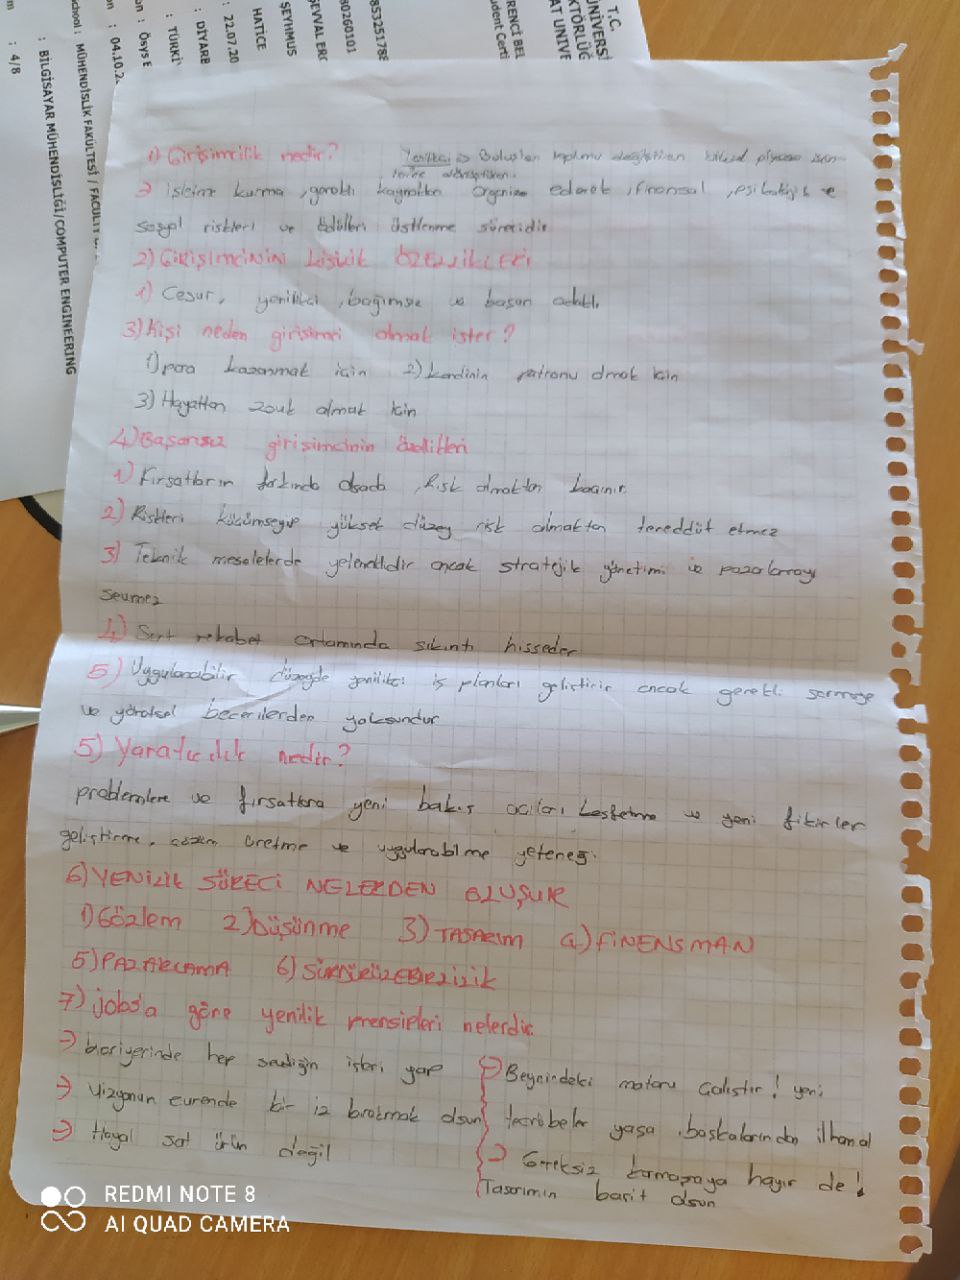 T.C.
ÜNİVERSİ
KTÖRLÜĞ
AT UNIVE
RENCİ BEL
udent Certi
8532517
80260101
ŞEVVAL ER
ŞEYHMUS
HATİCE
: 22.07.20
: DİYARB
: TÜRKİ
: ÖSYS E
: 04.10.2
: MÜHENDİSLİK FAKÜLTESİ / FACULTY
: BİLGİSAYAR MÜHENDİSLİĞİ/COMPUTER ENGINEERING
: 4/8
1) Girişimcilik nedir?
Yenilikçi => Buluşları toplumu değiştiren bilgisel piyasa
⇒ işletme kurma, gerekli kaynakları organize ederek, finansal, psikolojik ve
sosyal riskleri ve ödülleri üstlenme sürecidir
2) GİRİŞİMCİNİN KİŞİLİK ÖZELLİKLERİ
1) Cesur, yenilikçi, bağımsız ve başarı odaklı
3) Kişi neden girişimci olmak ister?
1) para kazanmak için 2) kendinin patronu olmak için
3) Hayattan zevk almak için
4) Başarısız girişimcinin özellikleri
1) Fırsatların farkında olsada, Risk almaktan kaçınır
2) Riskleri küçümseyip yüksek düzey risk almaktan tereddüt etmez
3) Teknik meselelerde yeteneklidir ancak stratejik yönetimi ve pazarlamayı
sevmez
4) Sert rekabet ortamında sıkıntı hisseder
5) Uygulanabilir düzeyde yenilikçi iş planları geliştirir ancak gerekli sermaye
ve yönetsel becerilerden yoksundur
5) Yaratıcılık nedir?
problemlere ve fırsatlara yeni bakış açıları keşfetme ve yeni fikirler
geliştirme, çözüm üretme ve uygulanabilme yeteneği.
6) YENİLİK SÜRECİ NELERDEN OLUŞUR
1) Gözlem 2) DÜŞÜNME 3) TASARIM 4) FİNENSMAN
5) PAZARLAMA 6) SÜRDÜRÜLEBİLİRLİK
7) jobs'a göre yenilik prensipleri nelerdir.
⇒ kariyerinde hep sevdiğin işleri yap
⇒ Vizyonun evrende bir iz bırakmak olsun
⇒ Hayal sat ürün değil
⇒ Beynindeki motoru çalıştır! yeni
tecrübeler yaşa, başkalarından ilham al
⇒ Gereksiz karmaşaya hayır de!
Tasarımın basit olsun
REDMI NOTE 8
AI QUAD CAMERA